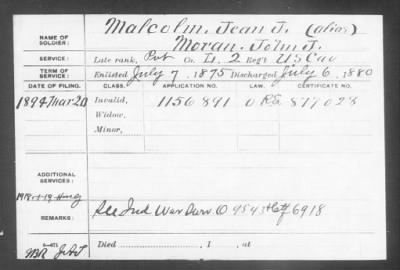 Malcolm, Jean J. (alias)
NAME OF SOLDIER: Moran, John J.
SERVICE: Late rank, Pvt Co. H. 2 Reg't US Cav
TERM OF SERVICE: Enlisted July 7, 1875 Discharged July 6, 1880
DATE OF FILING. CLASS. APPLICATION NO. LAW. CERTIFICATE NO.
1894 Mar 20 Invalid, 1156891 877028
Widow,
Minor,
ADDITIONAL SERVICES:
REMARKS: See Ind War
Died , 1 , at